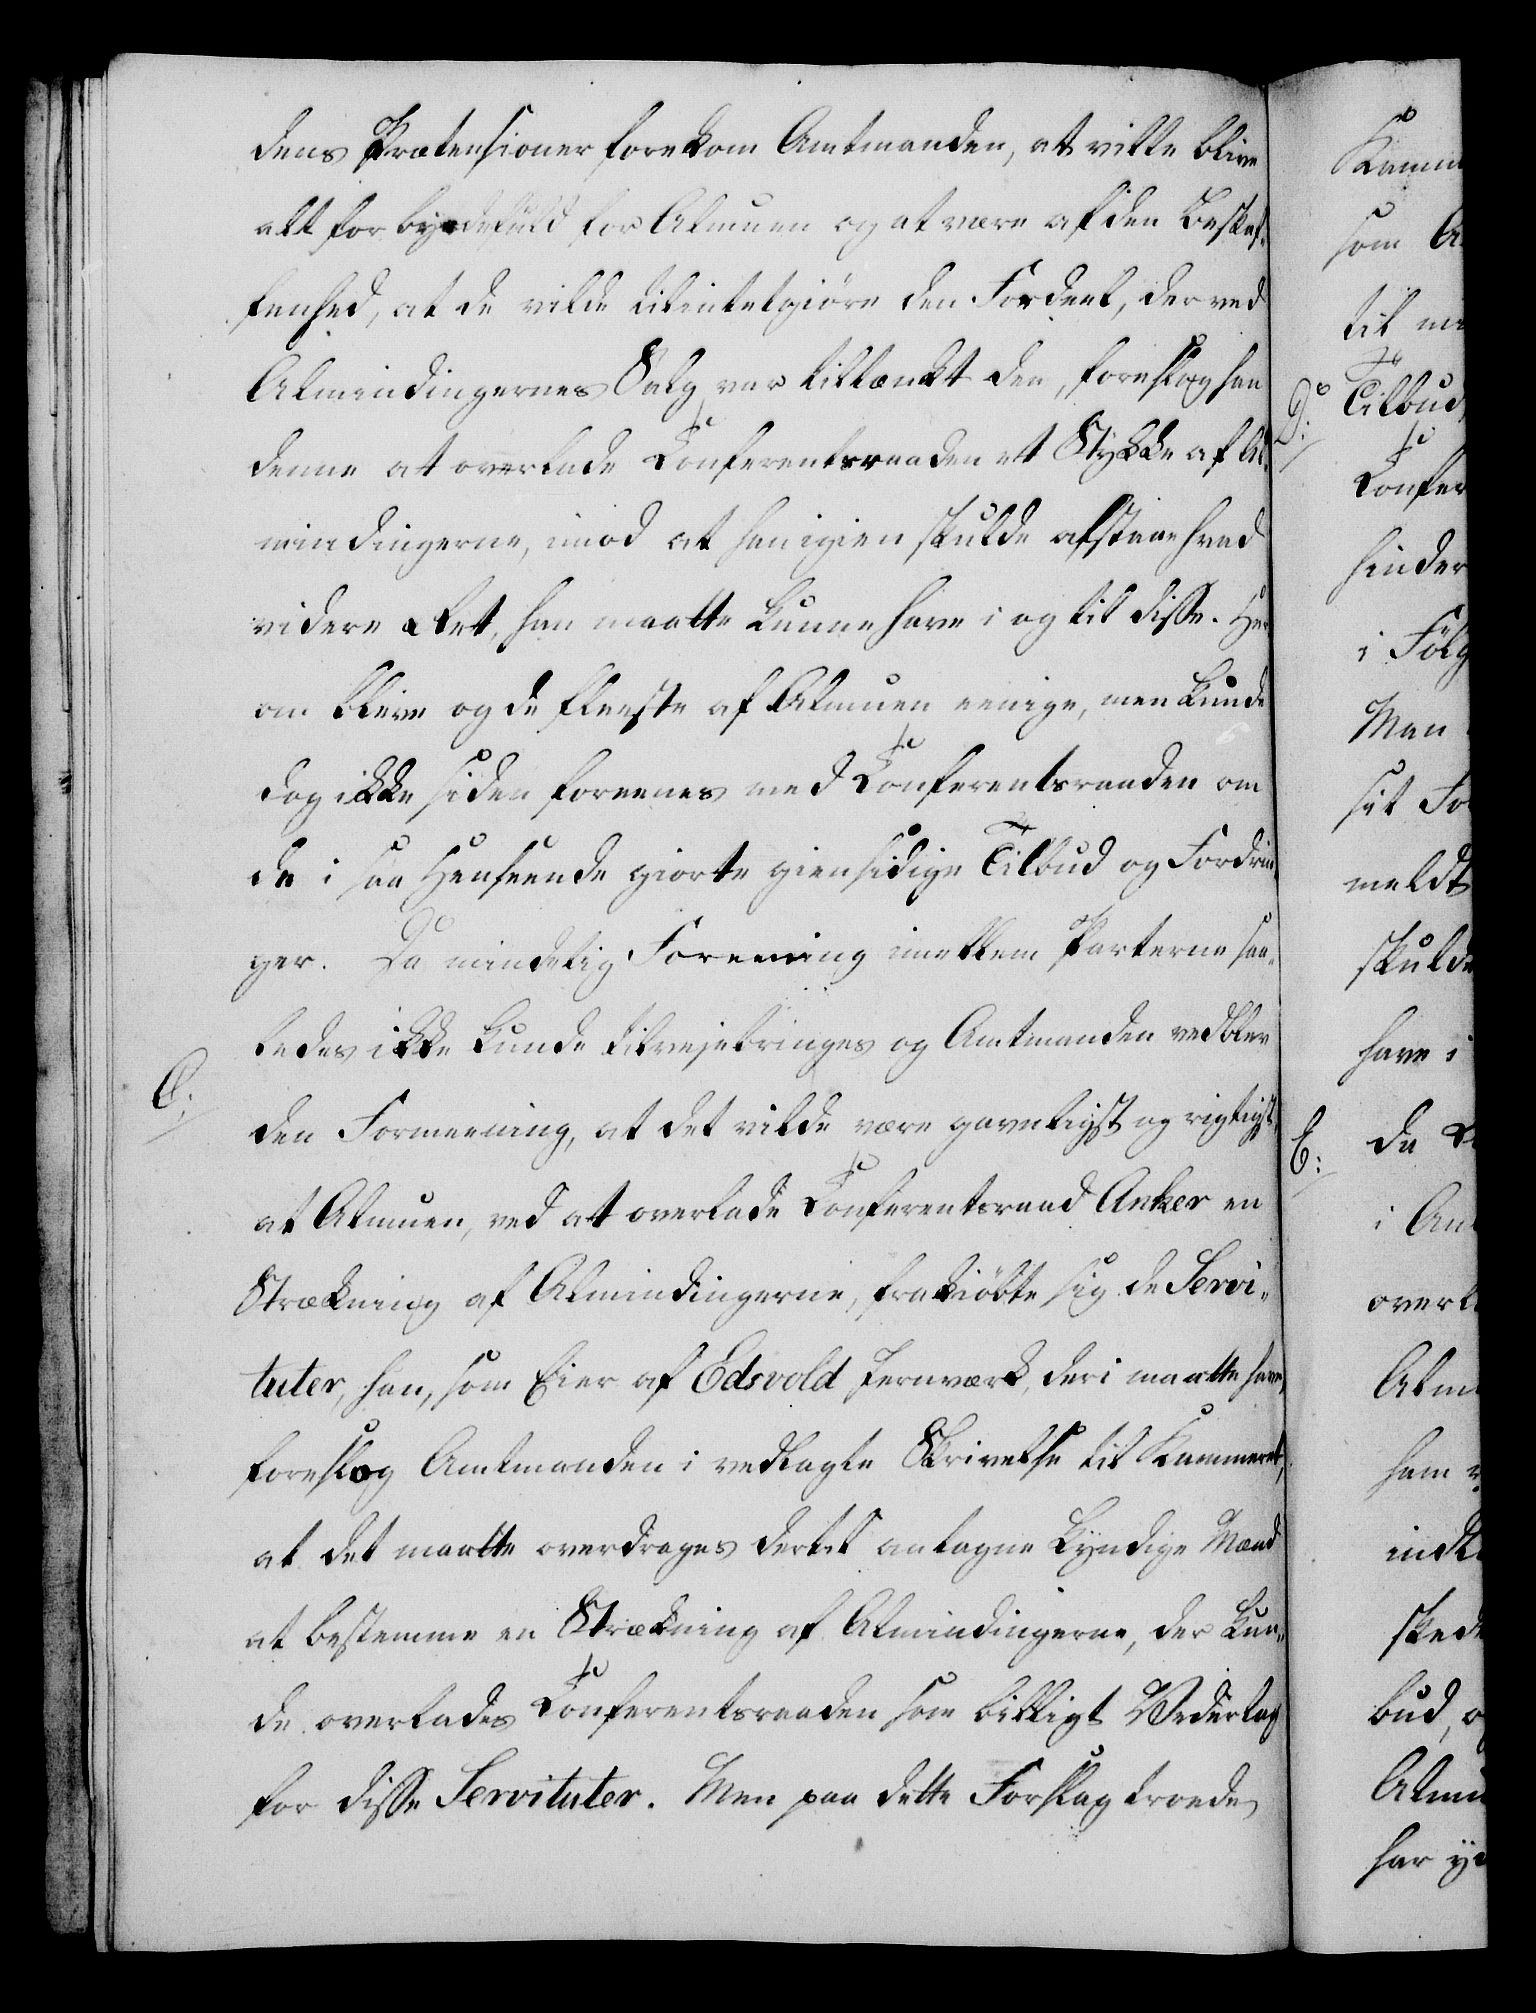 dens Prætensioner forekom Amtmanden, at ville blive
alt for byrdefuld for Almuen og at være af den Beskaf-
fenhed, at de vilde tilintetgiøre den Fordeel, der ved
Almindingernes Salg var tiltænkt den, foreslog han
denne at overlade Conferentsraaden et Stykke af Al-
mindingerne, imod at han igien skulde afstaae hvad
videre Ret, han maatte kunne have i og til disse. Her
om bleve og de fleeste af Almuen eenige, men kunde
dog ikke siden foreenes med Conferentsraaden om
de i saa Henseende giorte giensidige Tilbud og Fordrin-
ger. Da mindelig Foreening imellem Parterne saa-
ledes ikke kunde tilvejebringes og Amtmanden vedblev
C:
den Formeening, at det vilde være gavnligst og rigtigst,
at Almuen, ved at overlade Conferentsraad Anker en
Strækning af Almindingerne, frakiöbte sig de Servi-
tuter, han, som Eier af Edsvold Jernværk, deri maatte have,
foreslog Amtmanden i vedlagte Skrivelse til Kammeret,
at det maatte overdrages dertil antagne kyndige Mænd
at bestemme en Strækning af Almindingerne, der kun-
de overlades Conferentsraaden som billigt Vederlag
for disse Servituter. Men paa dette Forslag troede
som
til
D:
Tilbud,
Confer
hinder
i Følg
Man
sit
meldt
skulde
have i
E:
da
i
overl
ham
skede
bud,
har